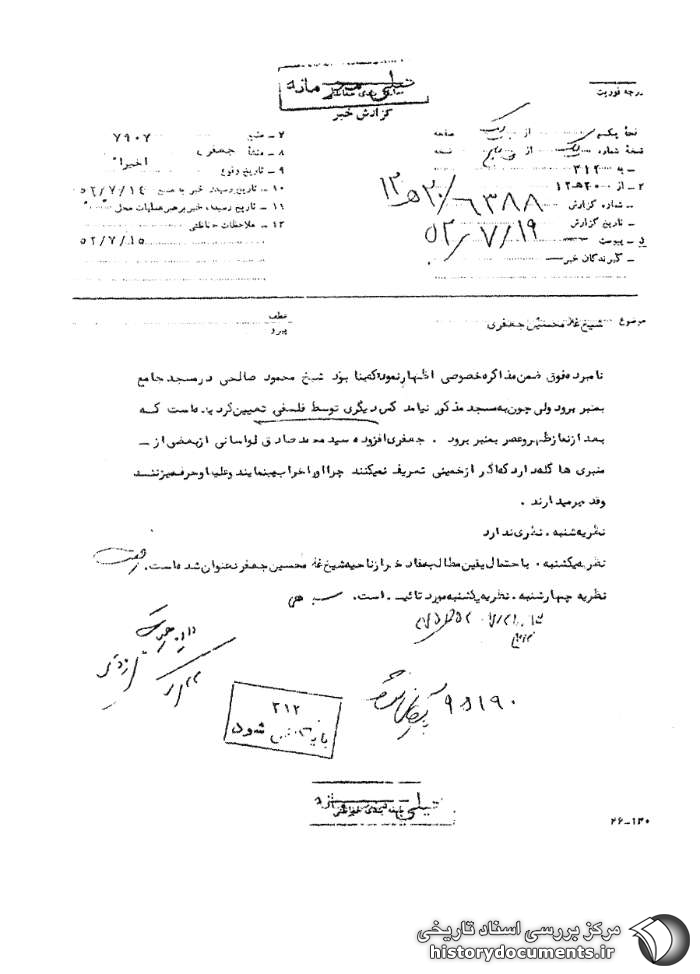 خیلی محرمانه
گزارش خبر
درجه فوریت
نسخه شماره یک از پنج نسخه
۱ – به ۳۱۲
۲ – از ۲۰ ه ۱۲
– شماره گزارش ۶۳۸۸ / ۲۰ ه ۱۲
– تاریخ گزارش ۵۲/۷/۱۹
– پیوست
– گیرندگان خبر
۷ – منبع ۷۹۰۷
۸ – منشأ جعفری
۹ – تاریخ وقوع اخیراً
۱۰ – تاریخ رسیدن خبر به منبع ۵۲/۷/۱۴
۱۱ – تاریخ رسیدن خبر برهبر عملیات محل
۱۲ – ملاحظات حفاظتی
۵۲/۷/۱۵
موضوع شیخ غلامحسین جعفری
عطف
پیرو
نامبرده فوق ضمن مذاکره خصوصی اظهار نمود که بنا بود شیخ محمود صالحی در مسجد جامع
بمنبر برود ولی چون به مسجد مذکور نیامد کس دیگری توسط فلسفی تعیین گردیده است که
بعد از نماز ظهر و عصر بمنبر برود . جعفری افزود سید محمد صادق لواسانی از بعضی از –
منبری ها گله دارد که اگر از خمینی تعریف نمیکنند چرا او را خراب مینمایند و علیه او حرف میزنند
نظریه شنبه . نظری ندارد
نظریه یکشنبه . با احتمال یقین مطالب مفاد خبر از ناحیه شیخ غلامحسین جعفری عنوان شده است .
نظریه چهارشنبه . نظریه یکشنبه مورد تائید است .
۳۱۲
بایگانی شود
خیلی محرمانه
۲۶–۱۳۰
مرکز بررسی اسناد تاریخی
historydocuments.ir